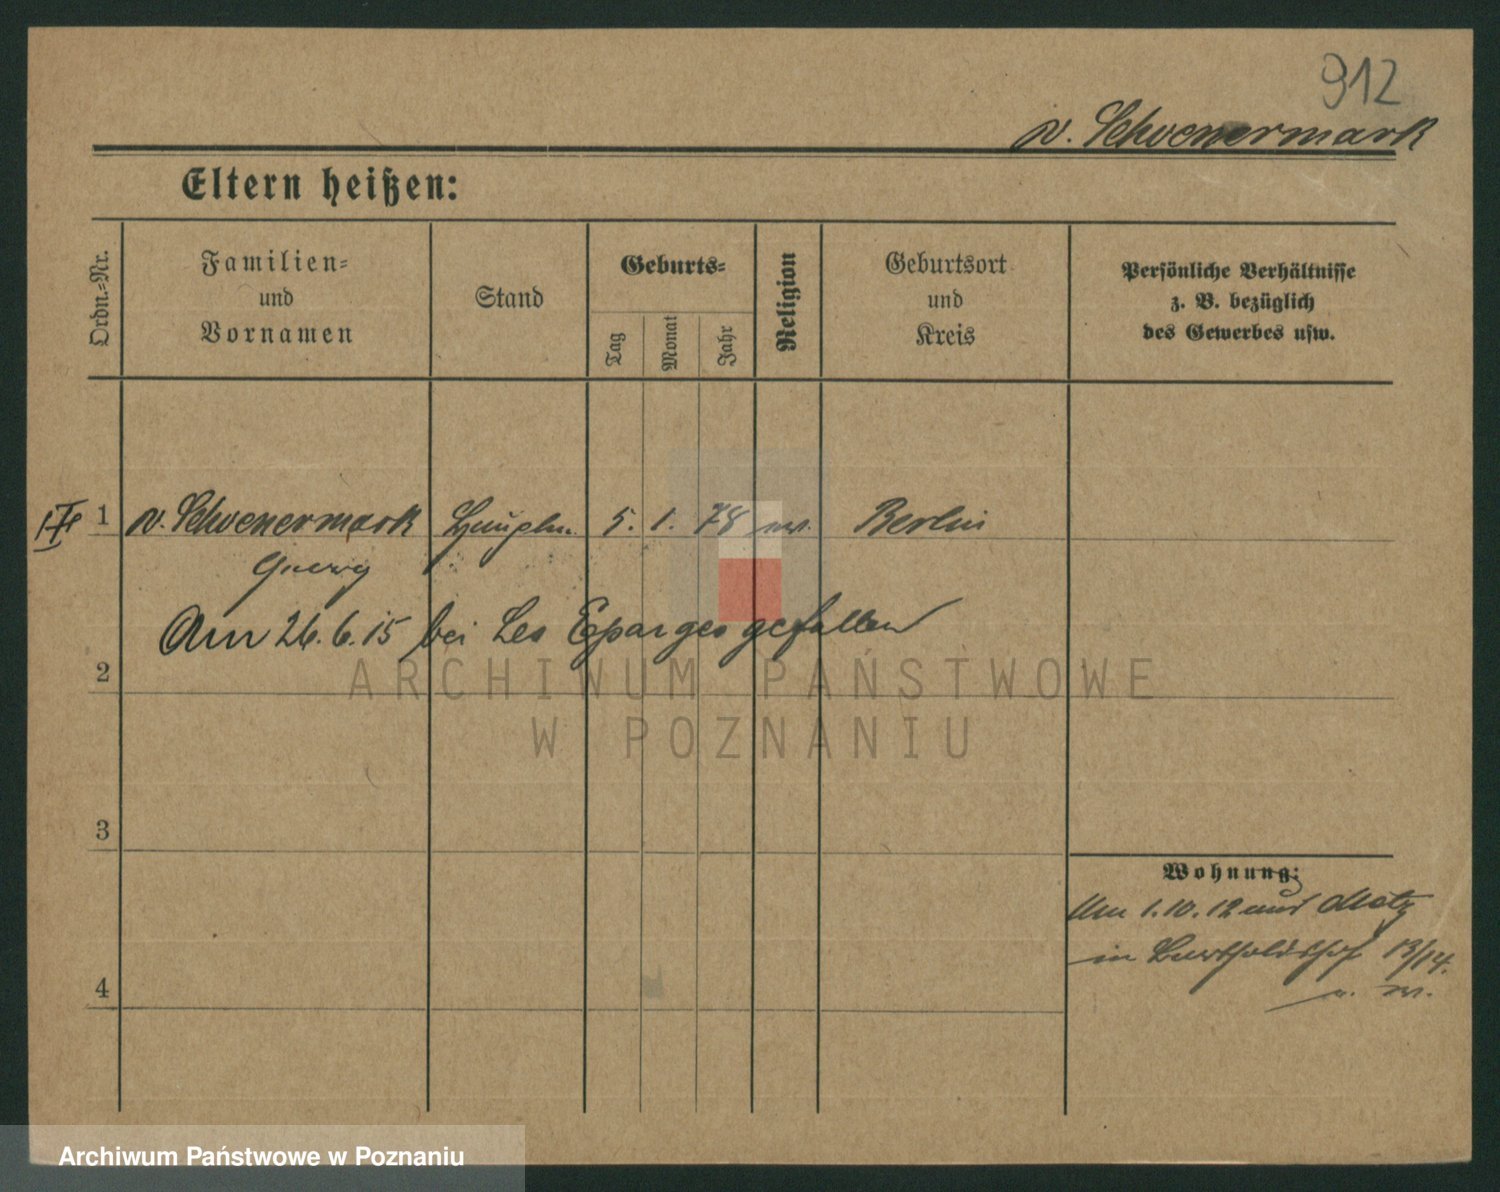 912
v. Schoenermark
Eltern heißen:
Ordn.-Nr.
Familien- und Vornamen
Stand
Geburts-
Tag
Monat
Jahr
Religion
Geburtsort und Kreis
Persönliche Verhältnisse
z. B. bezüglich
des Gewerbes usw.
1 v. Schoenermark Hauptm. 5. 1. 78 Berlin
Georg
Am 26.6.15 bei Les Eparges gefallen
2
3
4
Wohnung:
Am 1.10.12 aus Metz
in 13/14.
ARCHIWUM PAŃSTWOWE
W POZNANIU
Archiwum Państwowe w Poznaniu